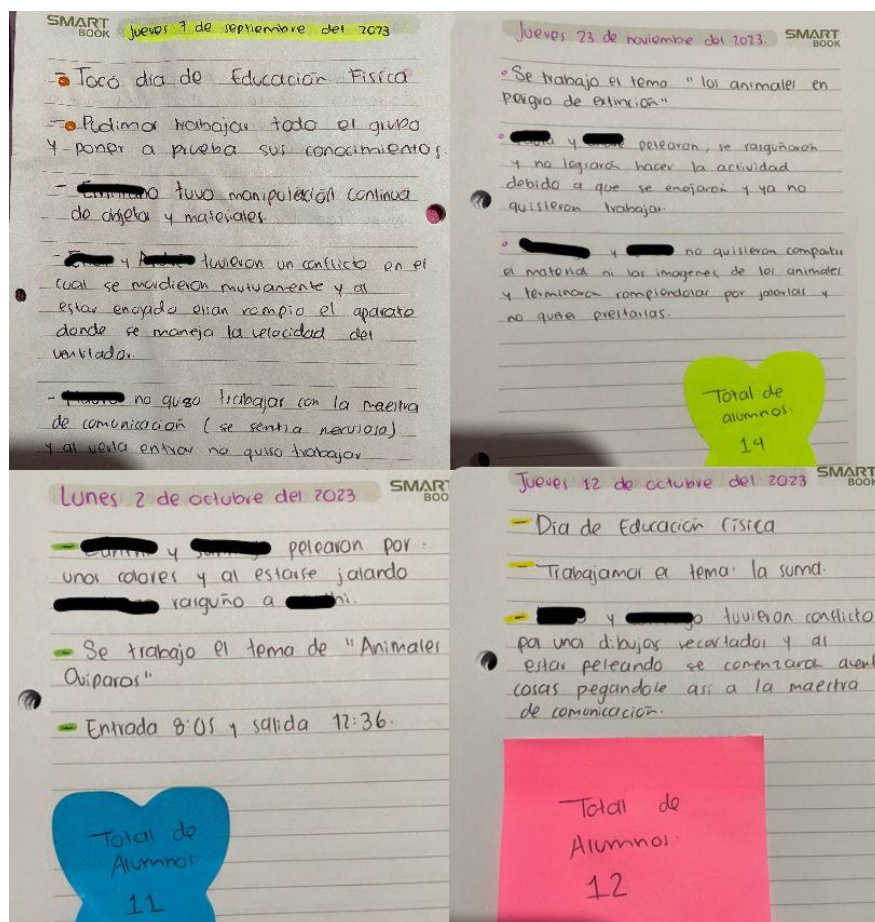 SMART
BOOK
Jueves 7 de septiembre del 2023
Tocó día de Educación Física
Pudimos trabajar todo el grupo
y poner a prueba sus conocimientos.
- tuvo manipulación continua
de objetos y materiales.
- y tuvieron un conflicto en el
cual se mordieron mutuamente y al
estar enojado rompio el aparato
donde se maneja la velocidad del
ventilador.
- no quiso trabajar con la maestra
de comunicación (se sentia nerviosa)
y al verla entrar no quiso trabajar
Jueves 23 de noviembre del 2023.
SMART
BOOK
Se trabajo el tema "los animales en
peligro de extinción"
y pelearon, se rasguñaron
y no lograron hacer la actividad
debido a que se enojaron y ya no
quisieron trabajar.
y no quisieron compartir
el material ni las imagenes de los animales
y terminaron rompiendolas por jalarlas y
no querer prestarlas.
Total de
alumnos.
14
Lunes 2 de octubre del 2023
SMART
BOO
y pelearon por
unos colores y al estarse jalando
rasguño a hi.
Se trabajo el tema de "Animales
Oviparos"
Entrada 8:05 y salida 12:36.
Total de
Alumnos
11
Jueves 12 de octubre del 2023
SMART
BOOK
Dia de Educación física
Trabajamos el tema: la suma.
y o tuvieron conflicto
por unos dibujos recortados y al
estar peleando se comenzaron avent
cosas pegandole asi a la maestra
de comunicación.
Total de
Alumnos.
12